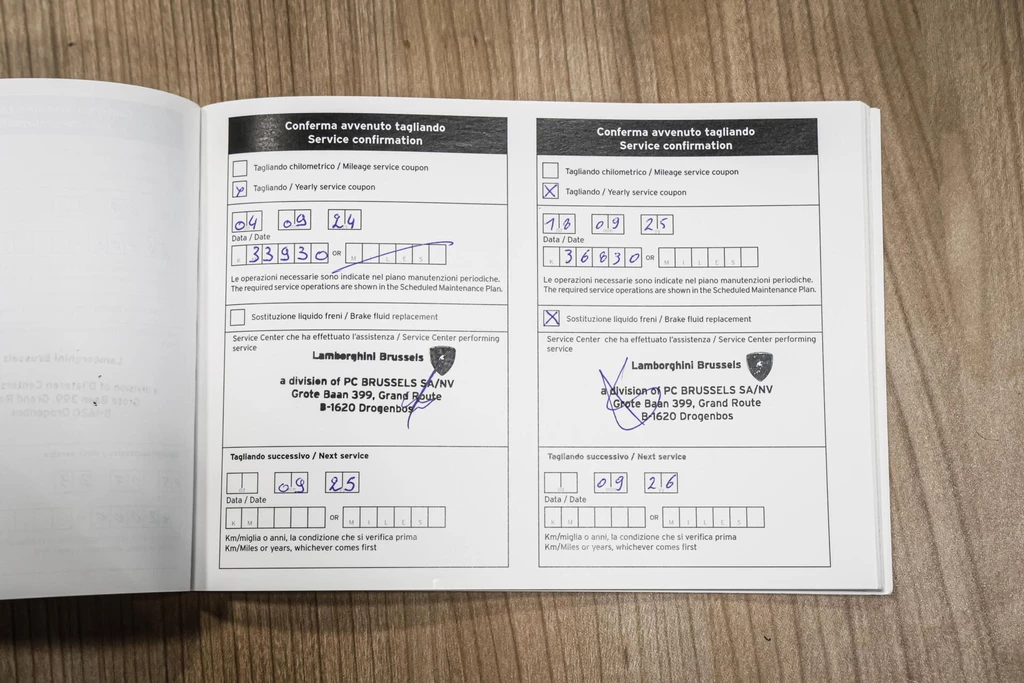 Conferma avvenuto tagliando
Service confirmation
Tagliando chilometrico / Mileage service coupon
Tagliando / Yearly service coupon
04 09 24
Data / Date
K 33930 OR M I L E S
Le operazioni necessarie sono indicate nel piano manutenzioni periodiche.
The required service operations are shown in the Scheduled Maintenance Plan.
Sostituzione liquido freni / Brake fluid replacement
Service Center che ha effettuato l'assistenza / Service Center performing
service
Lamborghini Brussels
a division of PC BRUSSELS SA/NV
Grote Baan 399, Grand Route
B-1620 Drogenbos
Tagliando successivo / Next service
09 25
Data / Date
K M OR M I L E S
Km/miglia o anni, la condizione che si verifica prima
Km/Miles or years, whichever comes first
Conferma avvenuto tagliando
Service confirmation
Tagliando chilometrico / Mileage service coupon
Tagliando / Yearly service coupon
18 09 25
Data / Date
K 36830 OR M I L E S
Le operazioni necessarie sono indicate nel piano manutenzioni periodiche.
The required service operations are shown in the Scheduled Maintenance Plan.
Sostituzione liquido freni / Brake fluid replacement
Service Center che ha effettuato l'assistenza / Service Center performing
service
Lamborghini Brussels
a division of PC BRUSSELS SA/NV
Grote Baan 399, Grand Route
B-1620 Drogenbos
Tagliando successivo / Next service
09 26
Data / Date
K M OR M I L E S
Km/miglia o anni, la condizione che si verifica prima
Km/Miles or years, whichever comes first